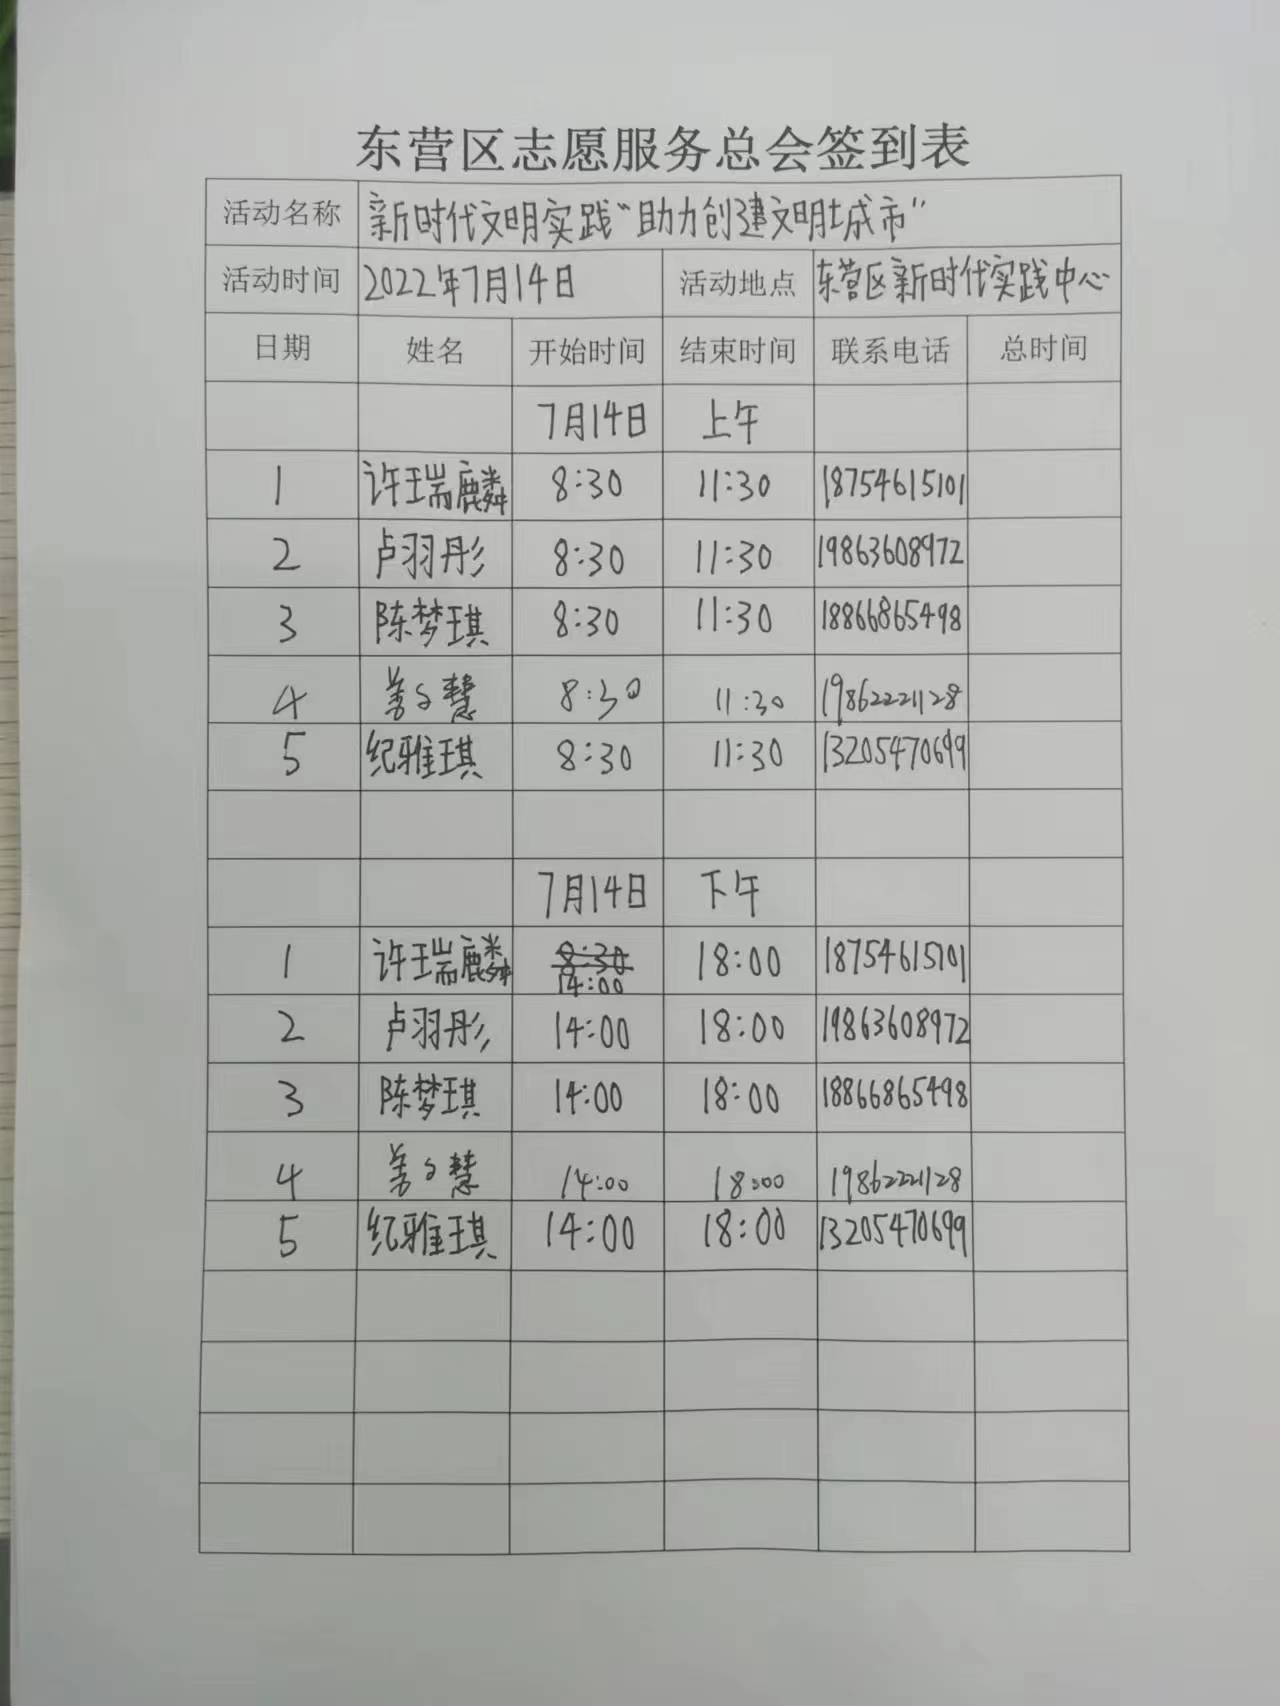 东营区志愿服务总会签到表
活动名称 新时代文明实践“助力创建文明城市”
活动时间 2022年7月14日 活动地点 东营区新时代实践中心
日期 姓名 开始时间 结束时间 联系电话 总时间
7月14日 上午
1 许瑞麟 8:30 11:30 18754615101
2 卢羽彤 8:30 11:30 19863608972
3 陈梦琪 8:30 11:30 18866865498
4 8:30 11:30 19862221128
5 纪雅琪 8:30 11:30 13205470699
7月14日 下午
1 许瑞麟 8:30 18:00 18754615101
14:00
2 卢羽彤 14:00 18:00 19863608972
3 陈梦琪 14:00 18:00 18866865498
4 14:00 18:00 19862221128
5 纪雅琪 14:00 18:00 13205470699